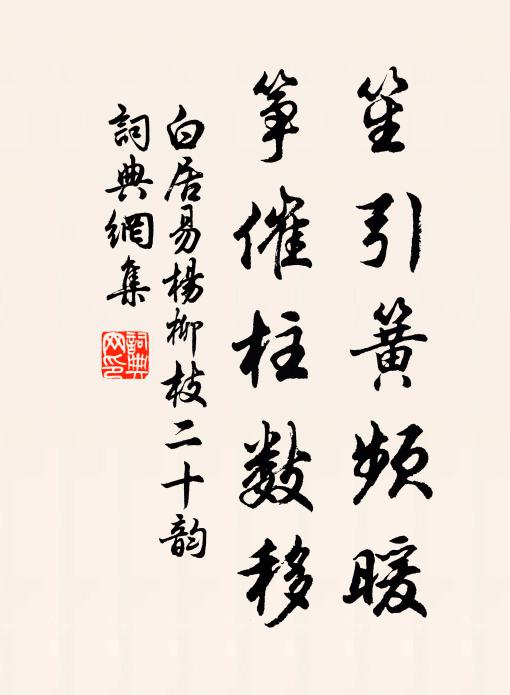 笙引簧頻暖
筝催柱數移
白居易楊柳枝二十韵
詞典網集
詞典網印